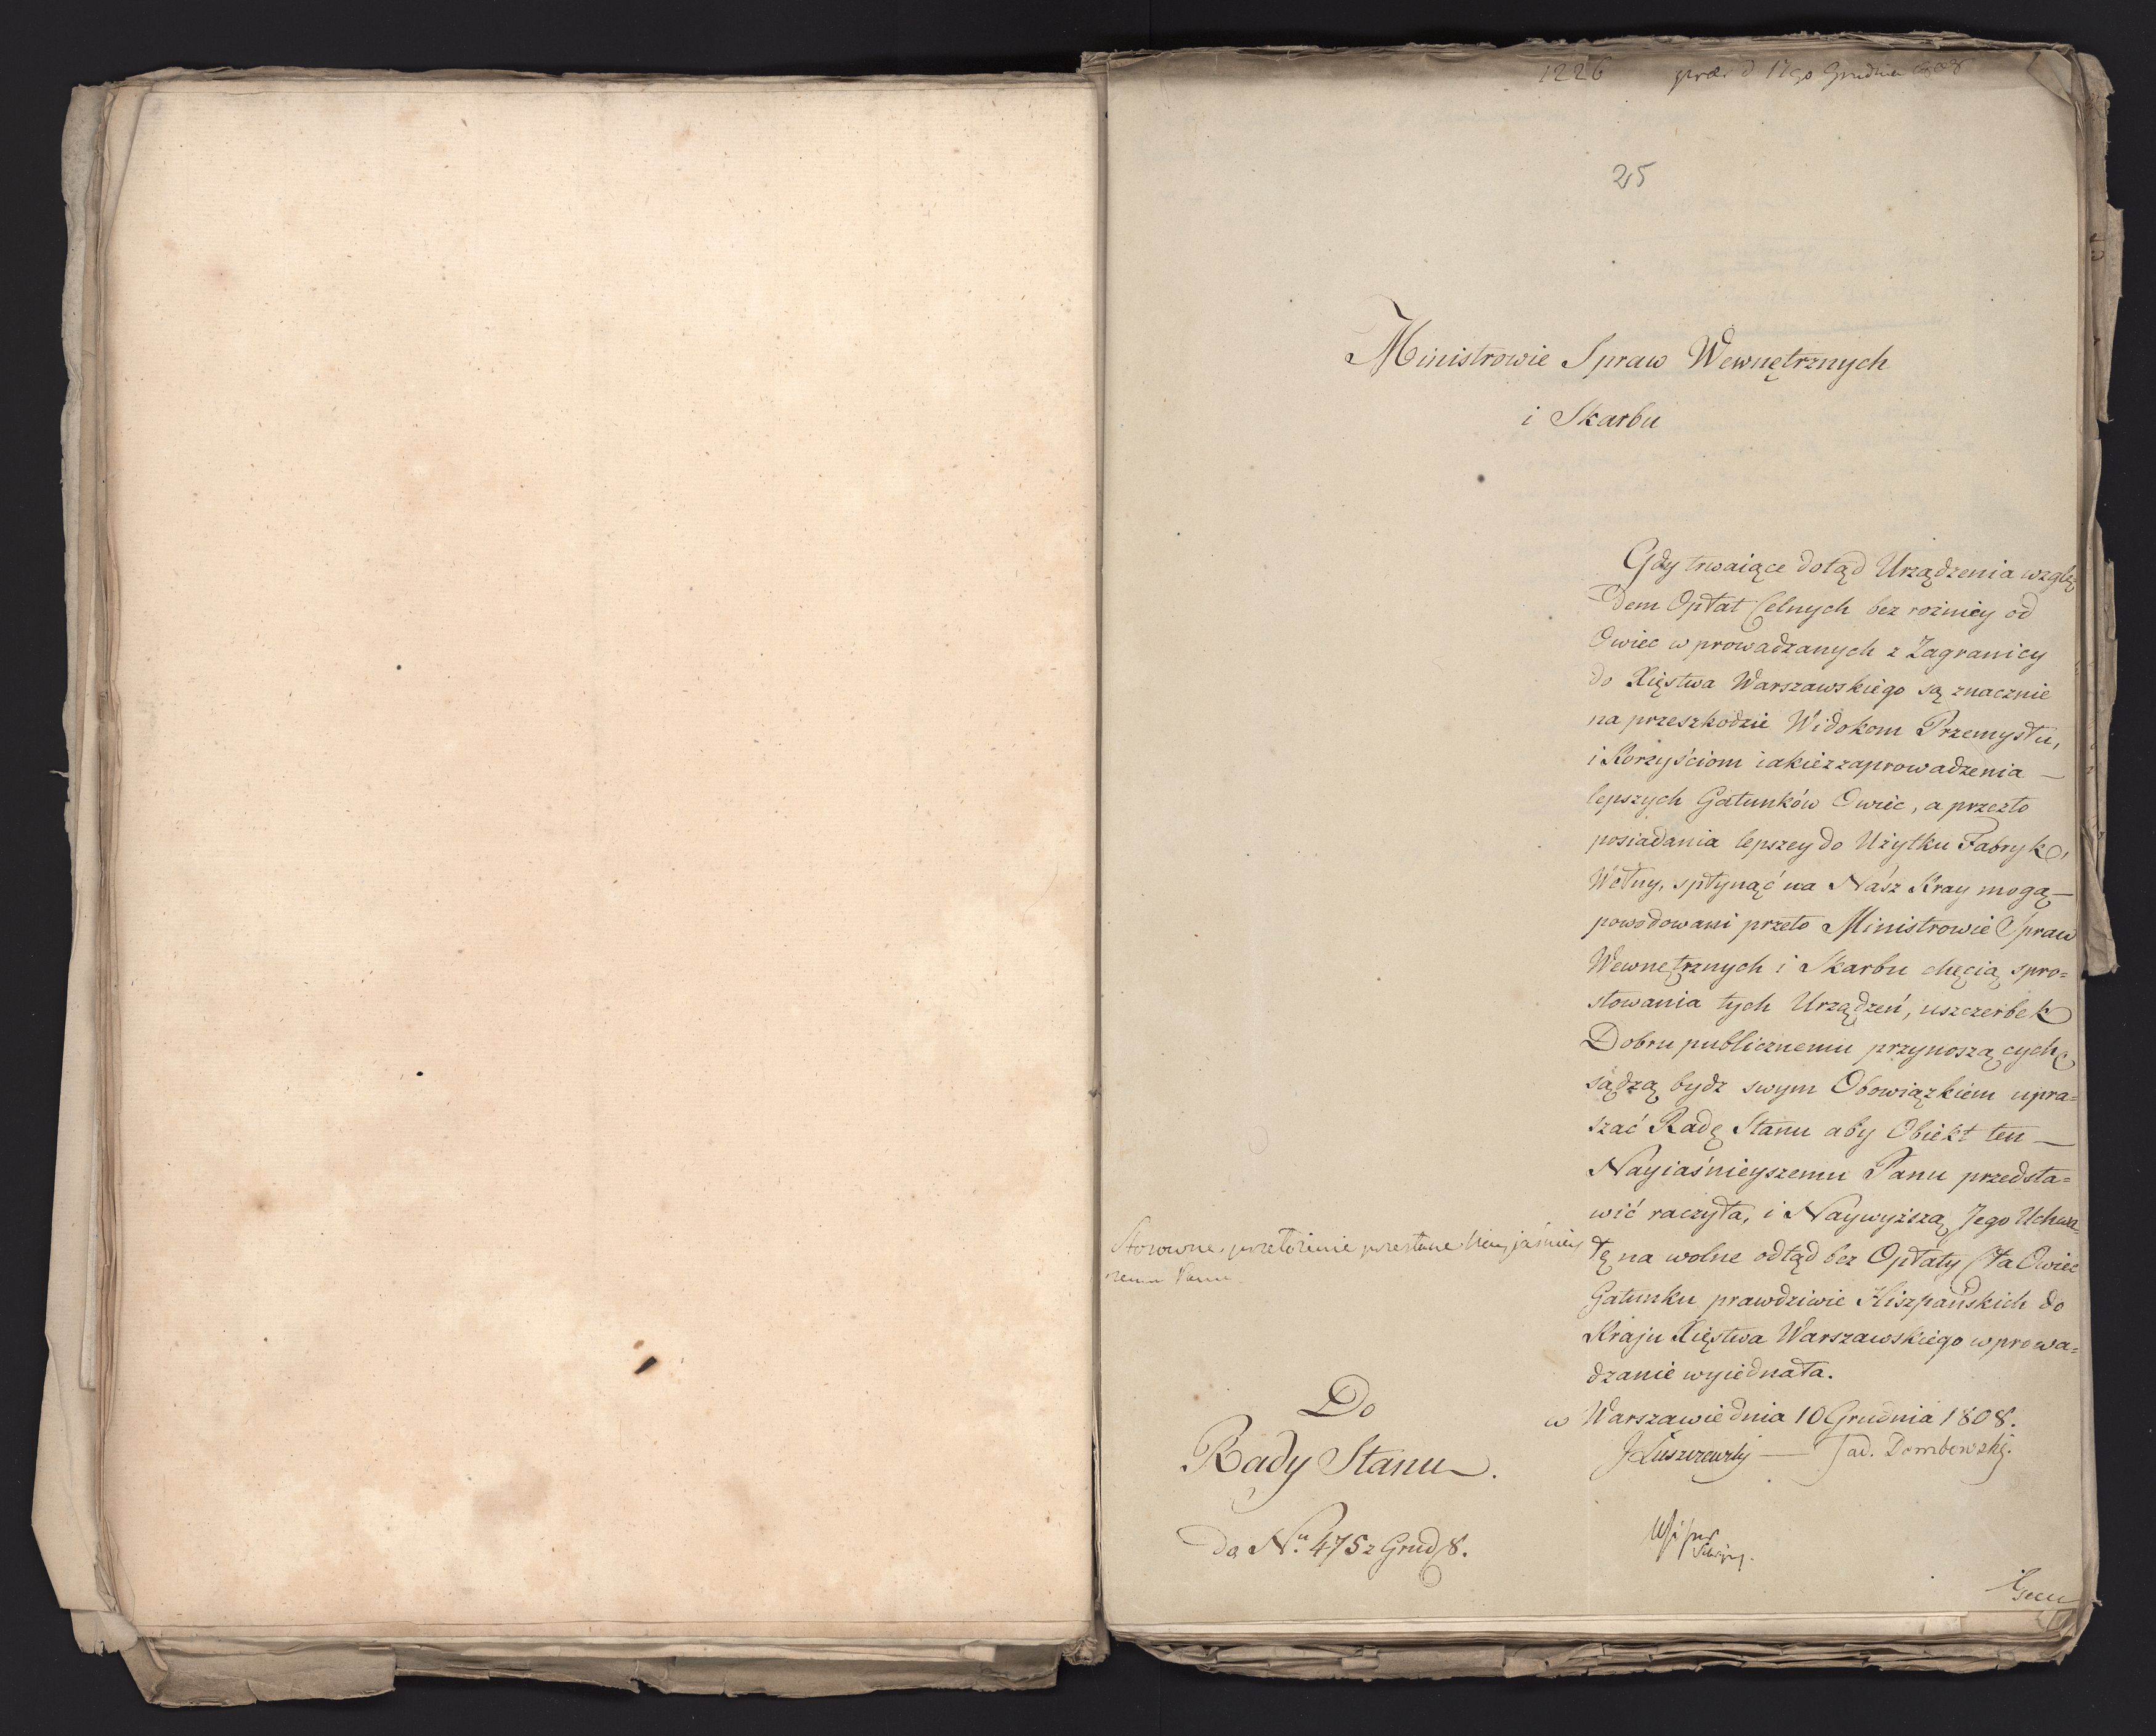 1226 præs d 17go Grudnia 1808
25
Ministrowie Spraw Wewnętrznych
i Skarbu
Gdy trwaiące dotąd Urządzenia wzglę
dem Opłat Celnych bez rożnicy od
Owiec wprowadzanych z Zagranicy
do Xięstwa Warszawskiego są znacznie
na przeszkodzie Widokom Przemysłu,
i Korzyściom iakie z zaprowadzenia —
lepszych Gatunków Owiec, a przezto
posiadania lepszey do Użytku Fabryk,
Wełny, spłynąć na Nász Kray mogą —
powodowani przeto Ministrowie Spraw
Wewnętrznych i Skarbu chęcią spro=
stowania tych Urządzeń, uszczerbek
Dobru publicznemu przynoszących
sądzą bydz swym Obowiązkiem upra=
szać Radę Stanu aby Obiekt ten —
Nayiaśnieyszemu Panu przedsta=
wić raczyła, i Naywyższą Jego Uchwa=
łę na wolne odtąd bez Opłaty Cła Owiec
Gatunku prawdziwie Hiszpańskich do
Kraju Xięstwa Warszawskiego wprowa=
dzanie wyiednała.
w Warszawie dnia 10 Grudnia 1808.
JŁuszczewski — Tad. Dembowski.
Stosowne przełożenie przesłane Nayjaśniey
szemu Panu
Do
Rady Stanu.
Do Nu. 475 z Grud 8.